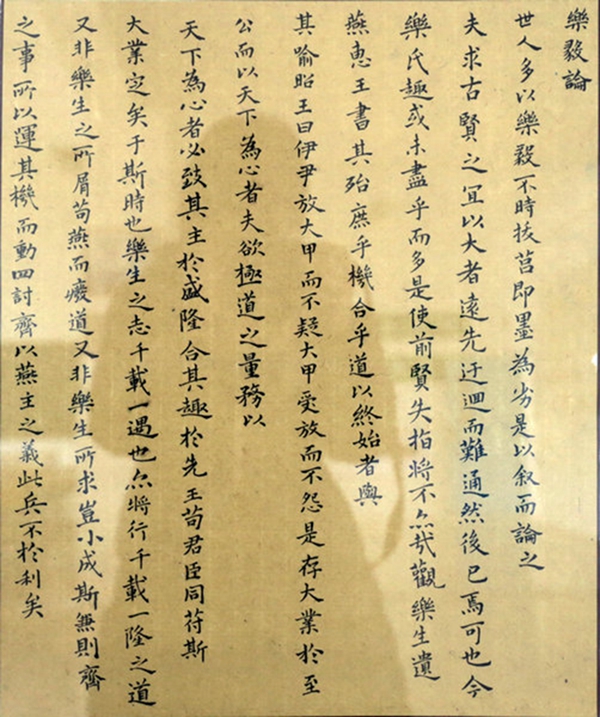 樂毅論
世人多以樂毅不時拔莒即墨為劣是以叙而論之
夫求古賢之宜以大者遠先迂迴而難通然後已焉可也今
樂氏趣或未盡乎而多是使前賢失指將不尒哉觀樂生遺
燕惠王書其殆庶乎機合乎道以終始者與
其喻昭王曰伊尹放大甲而不疑大甲受放而不怨是存大業於至
公而以天下為心者夫欲極道之量務以
天下為心者必致其主於盛隆合其趣於先王苟君臣同苻斯
大業定矣于斯時也樂生之志千載一遇也尒將行千載一隆之道
又非樂生之所屑苟燕而廢道又非樂生所求豈小成斯無則齊
之事所以運其機而動四討齊以燕主之義此兵不於利矣